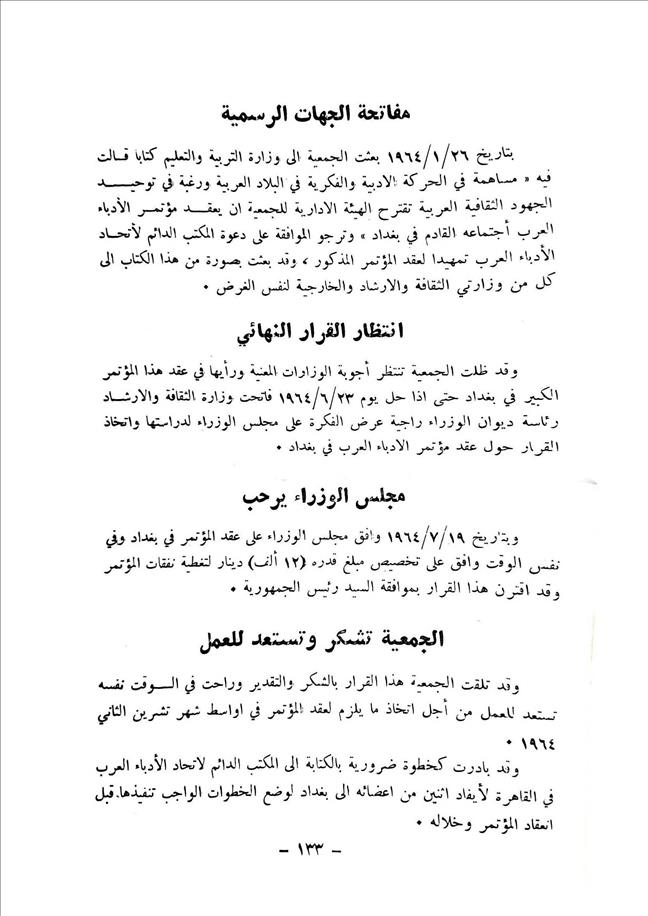 مفاتحة الجهات الرسمية
بتاريخ ١٩٦٤/١/٢٦ بعثت الجمعية الى وزارة التربية والتعليم كتابا قالت
فيه « مساهمة في الحركة الادبية والفكرية في البلاد العربية ورغبة في توحيد
الجهود الثقافية العربية تقترح الهيئة الادارية للجمعية ان يعقد مؤتمر الأدباء
العرب أجتماعه القادم في بغداد » وترجو الموافقة على دعوة المكتب الدائم لأتحاد
الأدباء العرب تمهيدا لعقد المؤتمر المذكور ، وقد بعثت بصورة من هذا الكتاب الى
كل من وزارتي الثقافة والارشاد والخارجية لنفس الغرض .
انتظار القرار النهائي
وقد ظلت الجمعية تنتظر أجوبة الوزارات المعنية ورأيها في عقد هذا المؤتمر
الكبير في بغداد حتى اذا حل يوم ١٩٦٤/٦/٢٣ فاتحت وزارة الثقافة والارشاد
رئاسة ديوان الوزراء راجية عرض الفكرة على مجلس الوزراء لدراستها واتخاذ
القرار حول عقد مؤتمر الادباء العرب في بغداد .
مجلس الوزراء يرحب
وبتاريخ ١٩٦٤/٧/١٩ وافق مجلس الوزراء على عقد المؤتمر في بغداد وفي
نفس الوقت وافق على تخصيص مبلغ قدره (١٢ ألف) دينار لتغطية نفقات المؤتمر
وقد اقترن هذا القرار بموافقة السيد رئيس الجمهورية .
الجمعية تشكر وتستعد للعمل
وقد تلقت الجمعية هذا القرار بالشكر والتقدير وراحت في الوقت نفسه
تستعد للعمل من أجل اتخاذ ما يلزم لعقد المؤتمر في اواسط شهر تشرين الثاني
١٩٦٤ .
وقد بادرت كخطوة ضرورية بالكتابة الى المكتب الدائم لاتحاد الأدباء العرب
في القاهرة لأيفاد اثنين من اعضائه الى بغداد لوضع الخطوات الواجب تنفيذها قبل
انعقاد المؤتمر وخلاله .
- ١٣٣ -